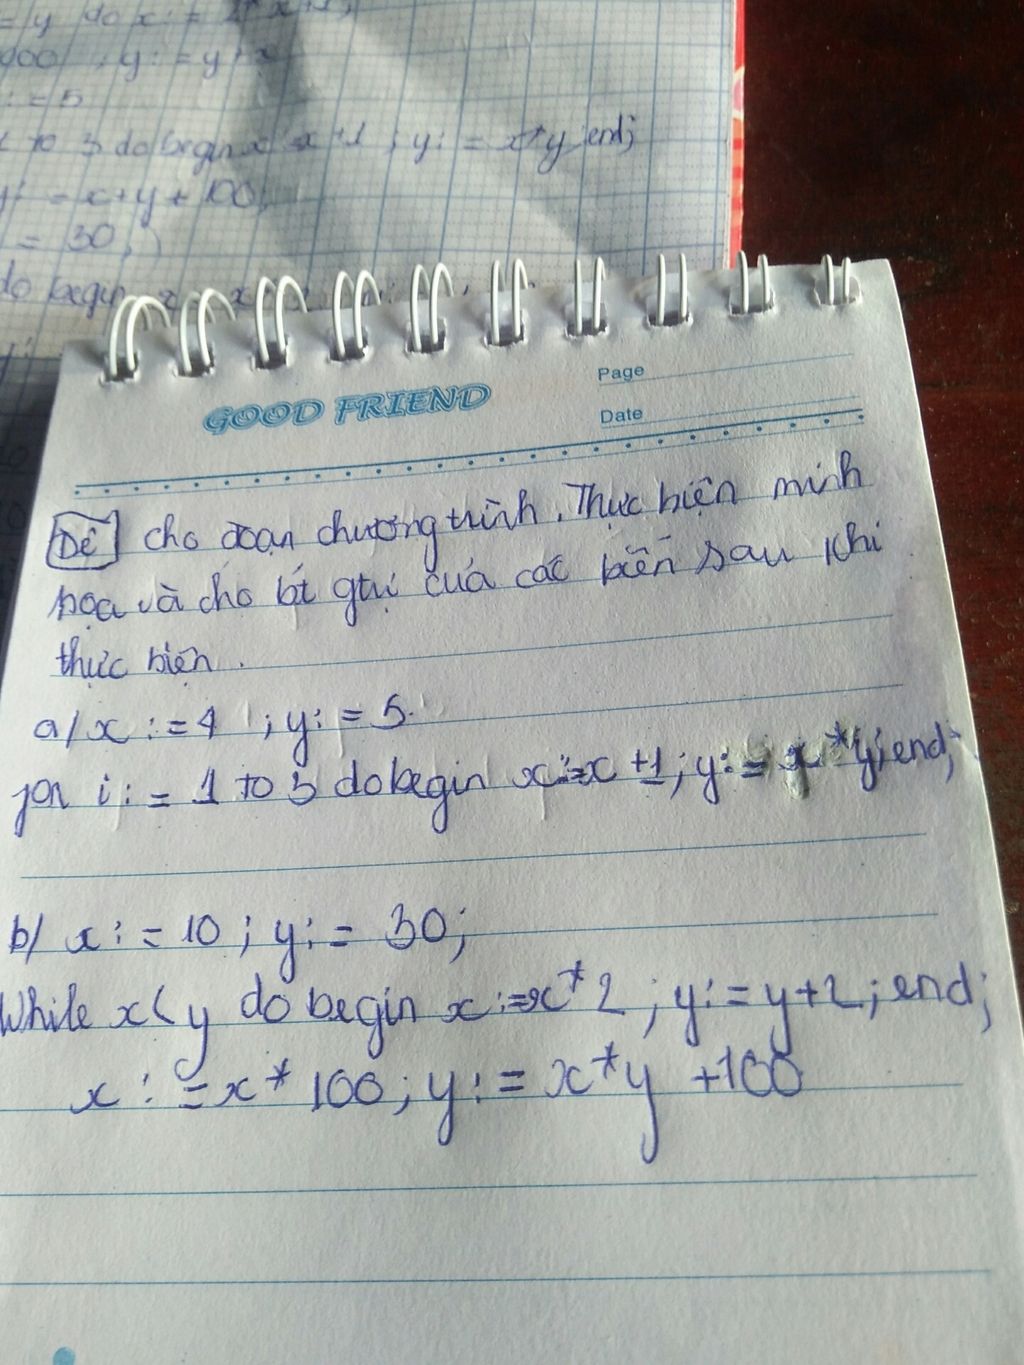 = y do x :=
000 ; y := y + x
:= 5
to 3 do begin x x +1 ; y := x * y end;
y := x + y + 100;
= 30;
do begin x x
GOOD FRIEND
Page
Date
Đề cho đoạn chương trình. Thực hiện minh
họa và cho bt gtrị của các biến sau khi
thực hiện.
a/ x := 4 ; y := 5.
for i := 1 to 3 do begin x := x +1 ; y := x * y ; end;
b/ x := 10 ; y := 30;
While x < y do begin x := x * 2 ; y := y + 2 ; end;
x := x * 100 ; y := x * y + 100